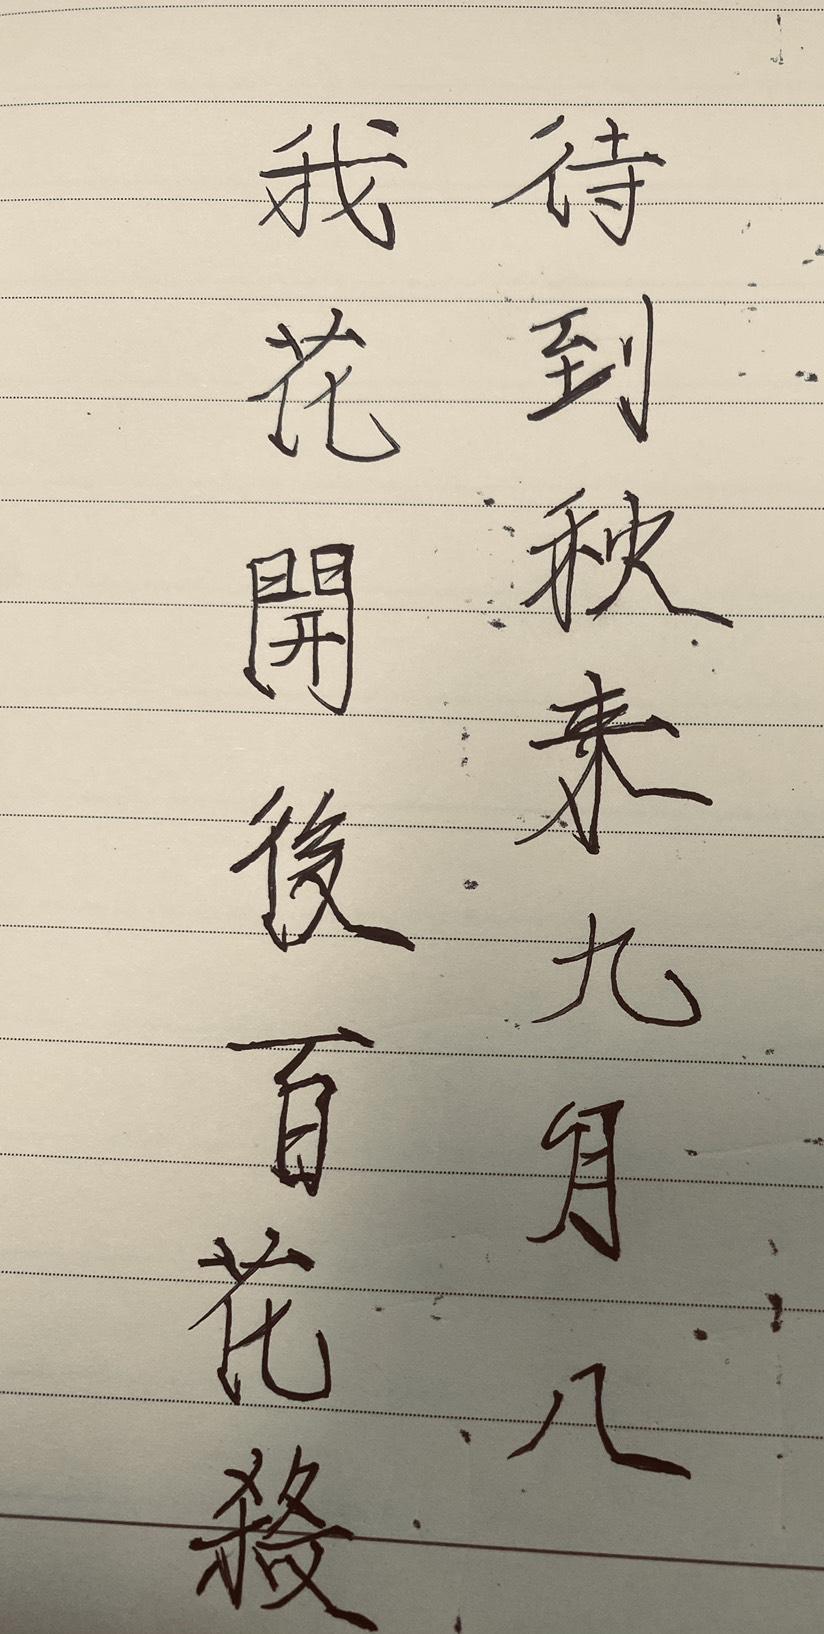 待到秋来九月八
我花開後百花殺